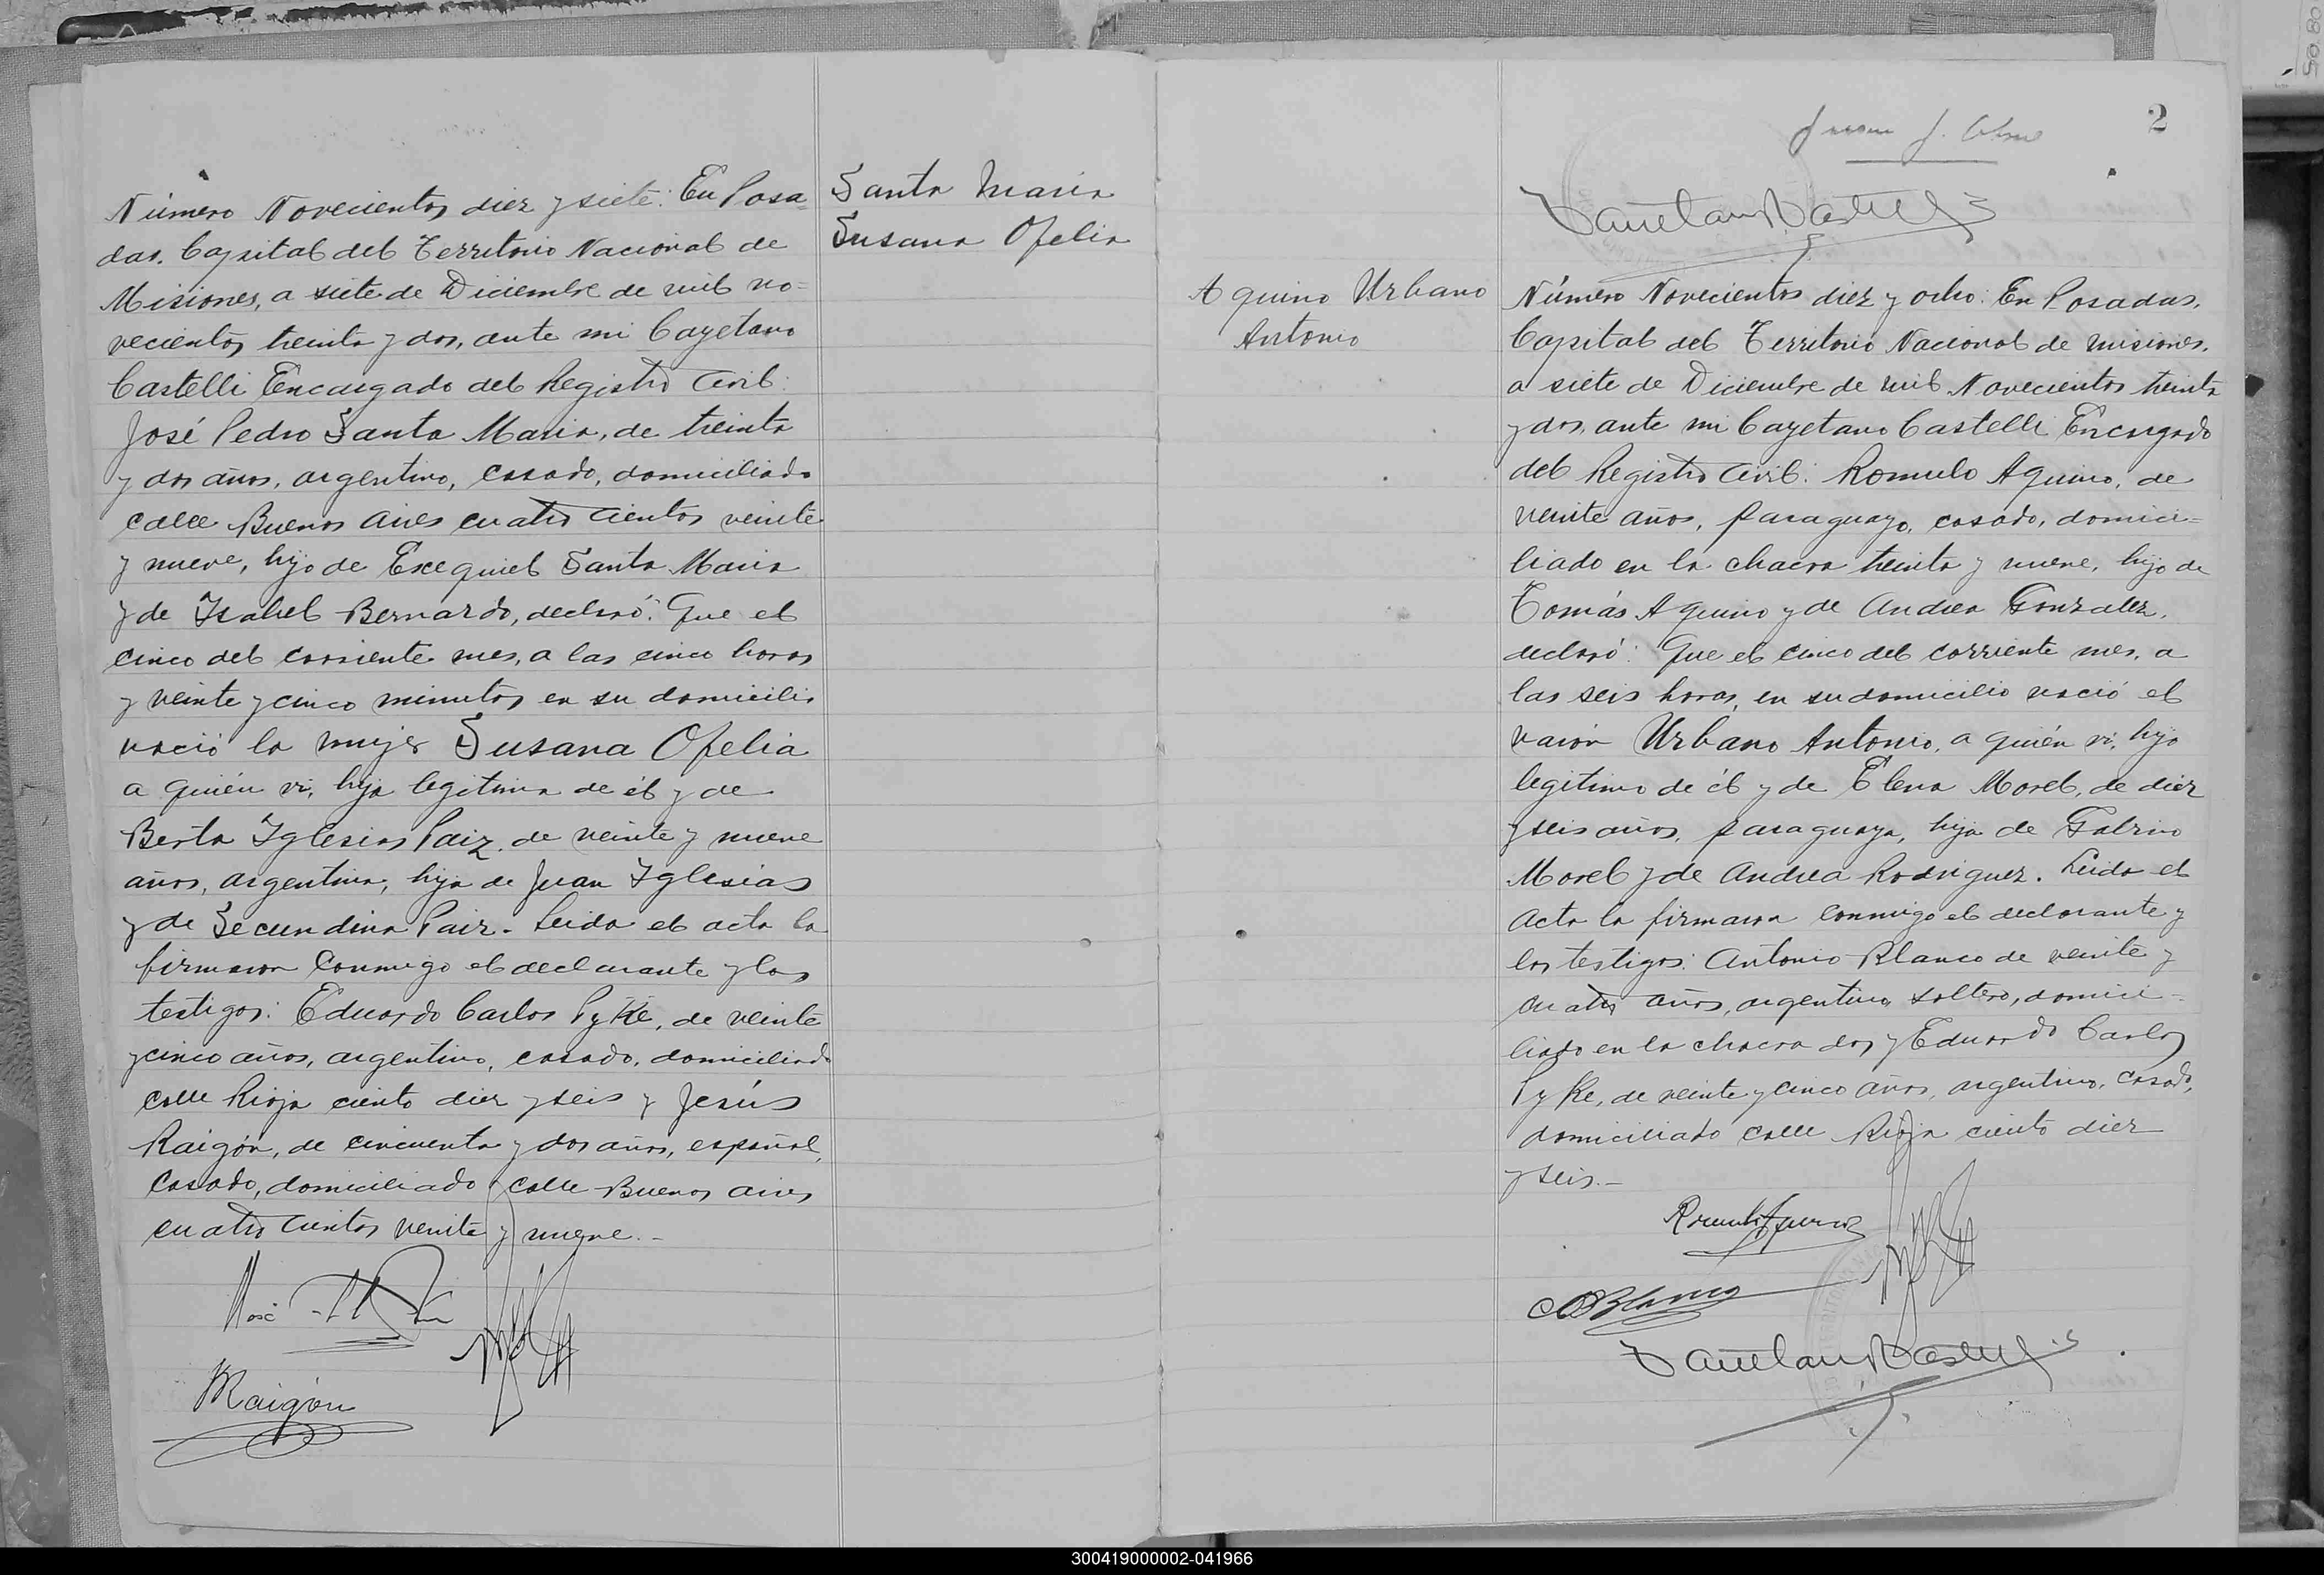 Número Novecientos diez y siete: En Posa=
das. Capital del Territorio Nacional de
Misiones, a siete de Diciembre de mil no=
vecientos treinta y dos, ante mi Cayetano
Castelli Encargado del Registro Civil:
José Pedro Santa Maria, de treinta
y dos años, argentino, casado, domiciliado
calle Buenos Aires cuatro cientos veinte
y nueve, hijo de Exequiel Santa Maria
y de Isabel Bernardo, declaró: Que el
cinco del corriente mes, a las cinco horas
y veinte y cinco minutos en su domicilio
nació la mujer Susana Ofelia
a quién vi, hija legitima de él y de
Berta Iglesias Paiz, de veinte y nueve
años, argentina, hija de Juan Iglesias
y de Secundina Paiz. Leida el acta la
firmaron conmigo el declarante y los
testigos: Eduardo Carlos Pyke, de veinte
y cinco años, argentino, casado, domiciliado
calle Rioja ciento diez y seis y Jesús
Raigón, de cincuenta y dos años, español,
casado, domiciliado calle Buenos Aires
cuatro cientos veinte y nueve.-
José
Raigón
Santa Maria
Susana Ofelia
2
Aquino Urbano
Antonio
Número Novecientos diez y ocho: En Posadas,
Capital del Territorio Nacional de Misiones,
a siete de Diciembre de mil Novecientos treinta
y dos, ante mi Cayetano Castelli Encargado
del Registro Civil: Romulo Aquino, de
veinte años, paraguayo, casado, domici=
liado en la chacra treinta y nueve, hijo de
Tomás Aquino y de Andrea Gonzalez,
declaró: Que el cinco del corriente mes, a
las seis horas, en su domicilio nació el
varón Urbano Antonio, a quién vi, hijo
legitimo de él y de Elena Morel, de diez
y seis años, paraguaya, hija de Gabino
Morel y de Andrea Rodriguez. Leida el
acta la firmaron conmigo el declarante y
los testigos: Antonio Blanco de veinte y
cuatro años, argentino, soltero, domici-
liado en la chacra dos y Eduardo Carlos
Pyke, de veinte y cinco años, argentino, casado,
domiciliado calle Rioja ciento diez
y seis.-
Romulo Aquino
Blanco
Cayetano Castelli
300419000002-041966